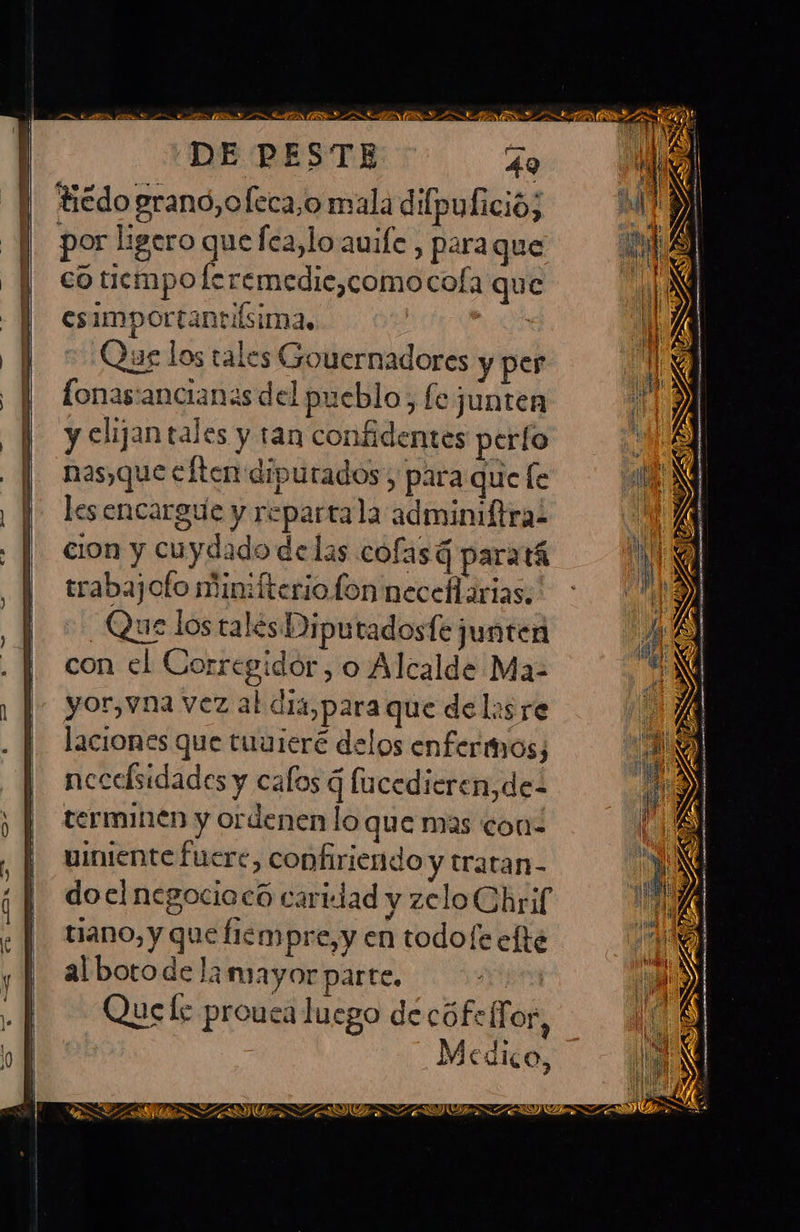 DE PESTE 49
tiẽdo grano, o ſeca, o mala diſpuſiciõ;
por ligero que ſea, lo auiſe, para que
cõ tiempo ſe remedie, como coſa que
es importantiſsima.
Que los tales Gouernadores y per
ſonas ancianas del pueblo, ſe junten
y elijan tales y tan confidentes perſo
nas, que eſten diputados, para que ſe
les encargue y reparta la adminiſtra-
cion y cuydado de las coſas q̃ para tã
trabajoſo miniſterio ſon neceſſarias.
Que los tales Diputados ſe junten
con el Corregidor, o Alcalde Ma-
yor, vna vez al dia, para que de las re
laciones que tuuierẽ delos enfermos,
neceſsidades y caſos q̃ ſucedieren, de-
terminen y ordenen lo que mas con-
uiniente fuere, confiriendo y tratan-
do el negocio cõ caridad y zelo Chriſ
tiano, y que ſiempre, y en todo ſe eſte
al boto de la mayor parte.
Que ſe prouea luego de cõfeſſor,
Medico,